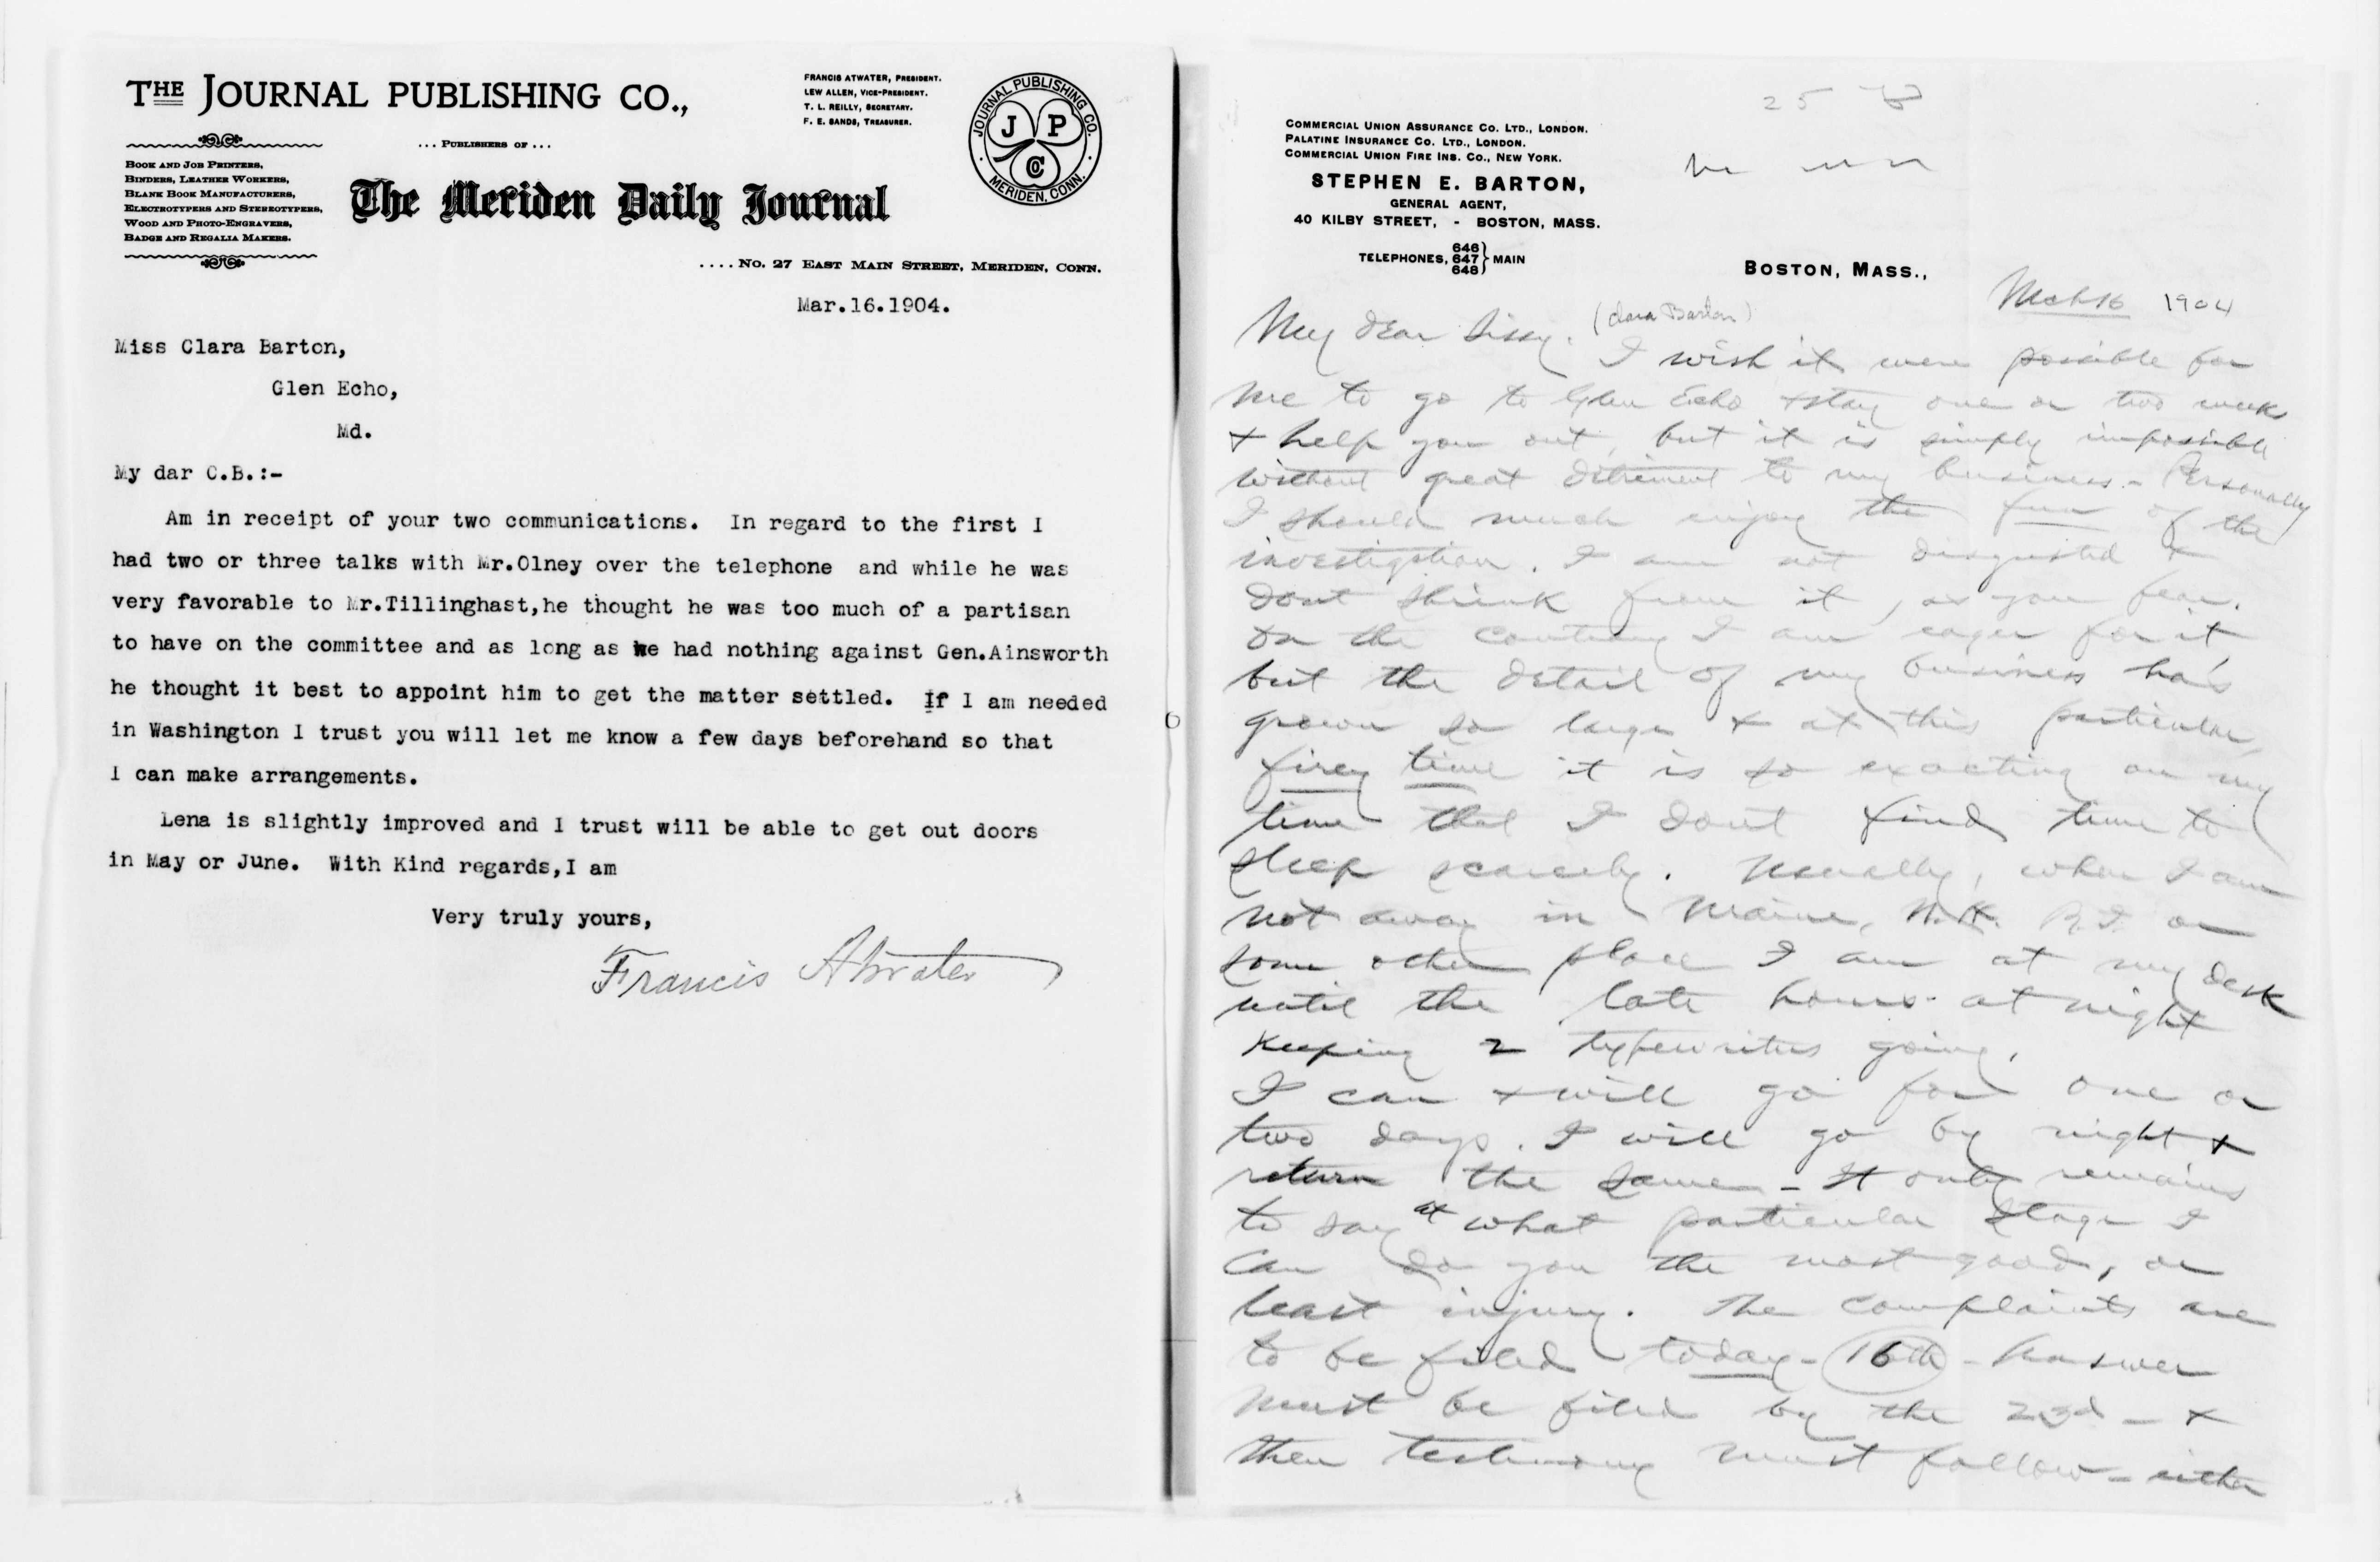 THE JOURNAL PUBLISHING CO.,
FRANCIS ATWATER, PRESIDENT.
LEW ALLEN, VICE-PRESIDENT.
T. L. REILLY, SECRETARY.
F. E. SANDS, TREASURER.
JOURNAL PUBLISHING CO.
J P
Co
MERIDEN, CONN.
... PUBLISHERS OF ...
BOOK AND JOB PRINTERS,
BINDERS, LEATHER WORKERS,
BLANK BOOK MANUFACTURERS,
ELECTROTYPERS AND STEREOTYPERS,
WOOD AND PHOTO-ENGRAVERS,
BADGE AND REGALIA MAKERS.
The Meriden Daily Journal
.... No. 27 EAST MAIN STREET, MERIDEN, CONN.
Mar.16.1904.
Miss Clara Barton,
Glen Echo,
Md.
My dar C.B.:-
Am in receipt of your two communications. In regard to the first I
had two or three talks with Mr.Olney over the telephone and while he was
very favorable to Mr.Tillinghast,he thought he was too much of a partisan
to have on the committee and as long as we had nothing against Gen.Ainsworth
he thought it best to appoint him to get the matter settled. If I am needed
in Washington I trust you will let me know a few days beforehand so that
I can make arrangements.
Lena is slightly improved and I trust will be able to get out doors
in May or June. With Kind regards,I am
Very truly yours,
Francis Atwater
25
COMMERCIAL UNION ASSURANCE CO. LTD., LONDON.
PALATINE INSURANCE CO. LTD., LONDON.
COMMERCIAL UNION FIRE INS. CO., NEW YORK.
STEPHEN E. BARTON,
GENERAL AGENT,
40 KILBY STREET, - BOSTON, MASS.
TELEPHONES, 646 647 648 MAIN
BOSTON, MASS.,
Mch 16 1904
My dear Sissy. (Clara Barton)
I wish it were possible for
me to go to Glen Echo & stay one or two weeks
& help you out, but it is simply impossible
without great detriment to my business - Personally
I should much enjoy the fun of the
investigation. I am not disgusted &
dont shrink from it, as you fear.
On the contrary I am eager for it
but the detail of my business has
grown so large & at this particular
firey time it is so exacting on my
time that I dont find time to
sleep scarcely. Usually, when I am
not away in Maine, N.H. R.I. or
some other place I am at my desk
until the late hours at night
Keeping 2 typewriters going.
I can & will go for one or
two days. I will go by night &
return the same - It only remains
to say at what particular stage I
can do you the most good, or
least injury. The complaints are
to be filed today - 16th - Answer
must be filed by the 23d - &
then testimony must follow - either